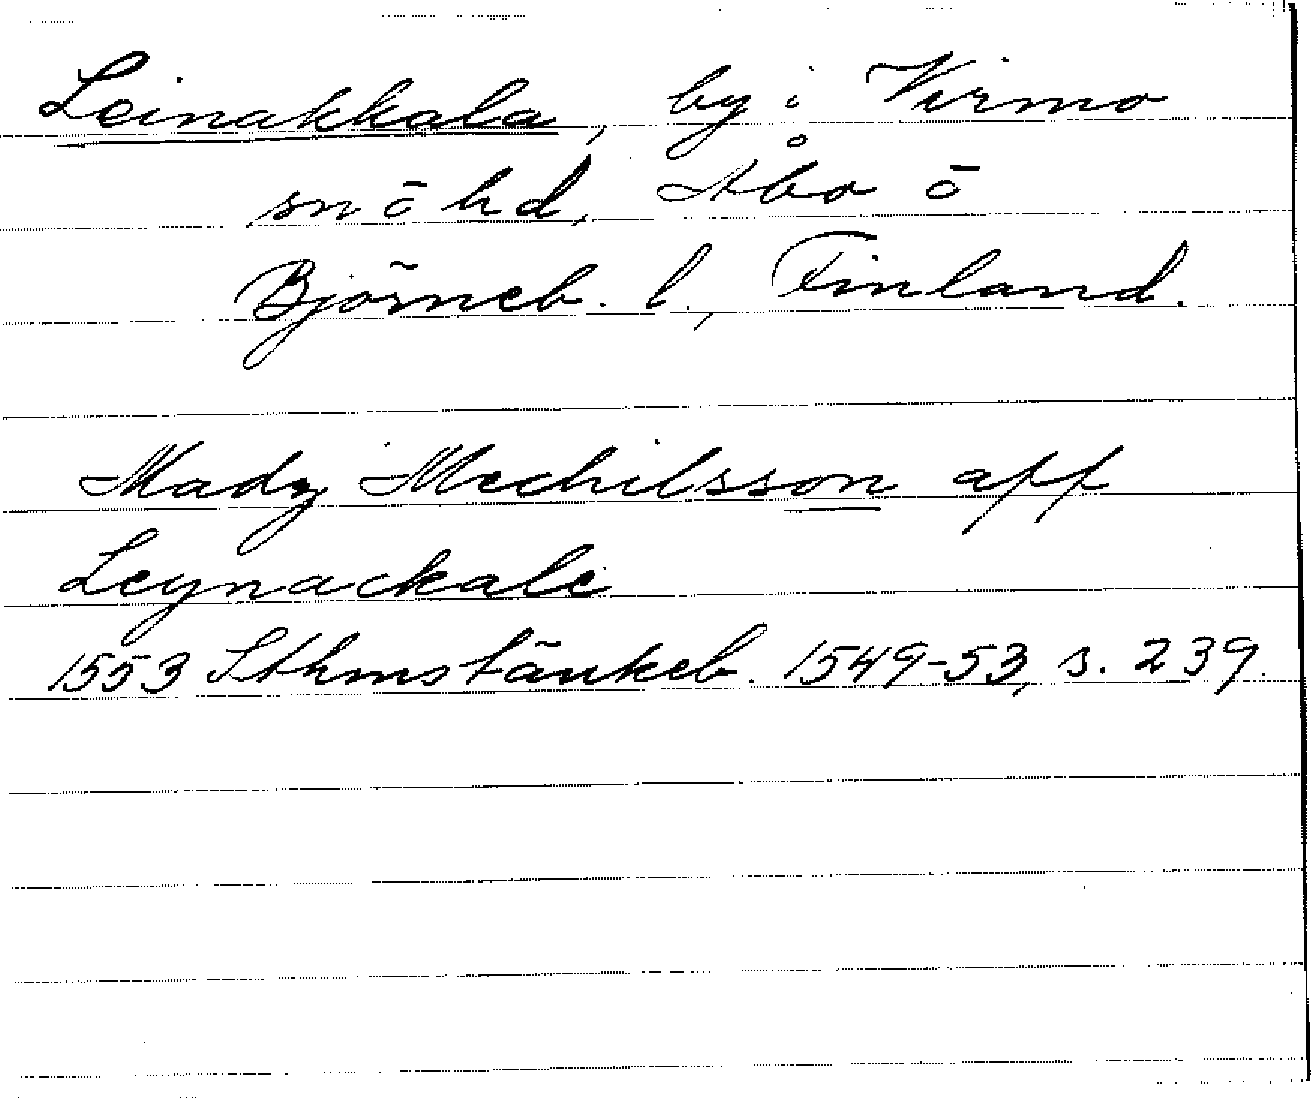 Leinakkala, by i Virmo
sn ō hd, Åbo ō
Björneb. l., Finland.
Mady Mechilsson aff
Leynackale
1553 Sthms tänkeb. 1549-53, s. 239.